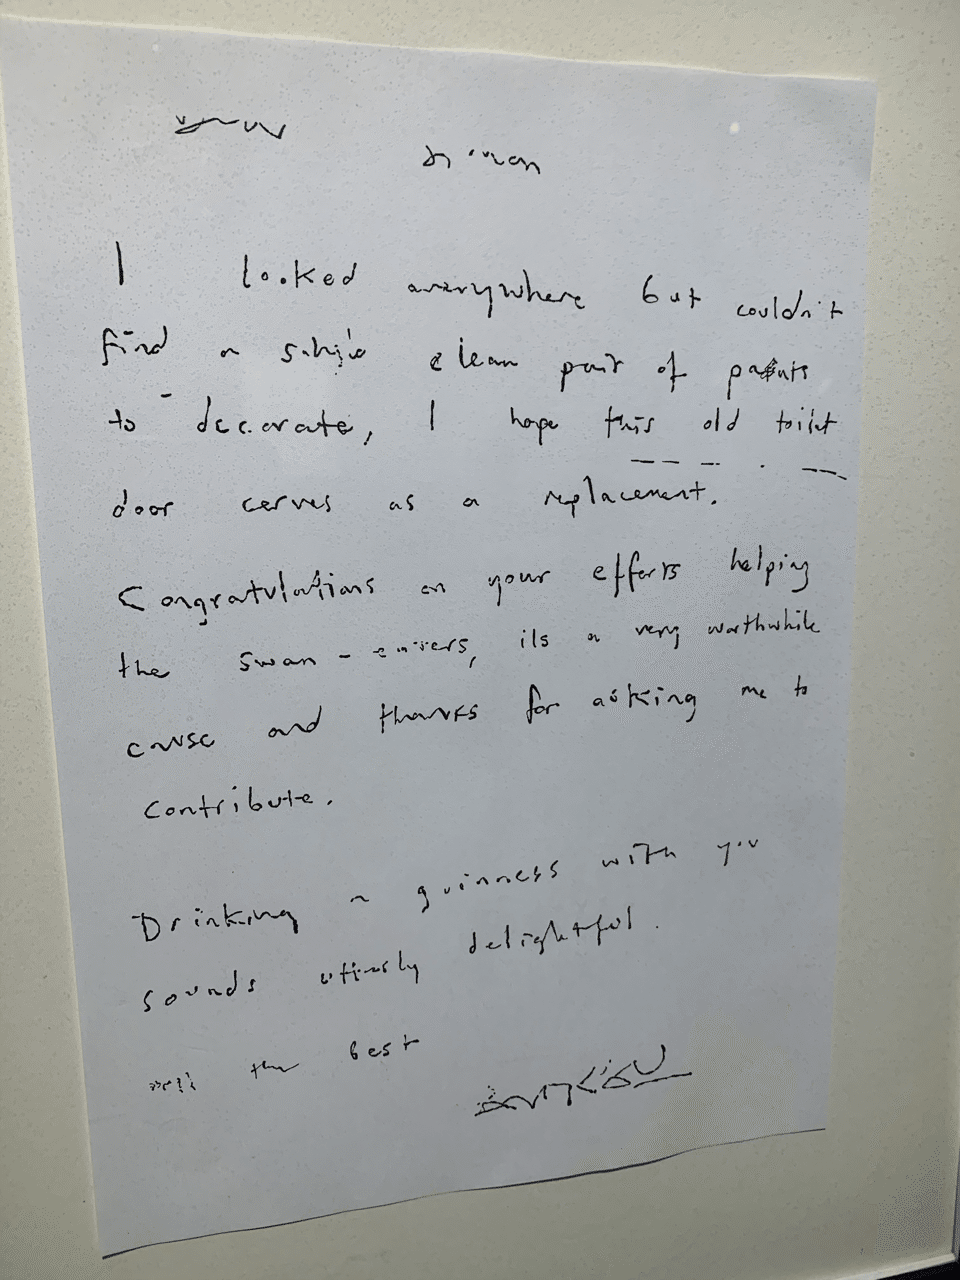 I looked everywhere but couldn't
find a single clean pair of pants
to decorate, I hope this old toilet
door cerves as a replacement.
Congratulations on your efforts helping
the swan-eaters, its a very worthwhile
cause and thanks for asking me to
contribute.
Drinking a guinness with you
sounds utterly delightful.
all the best